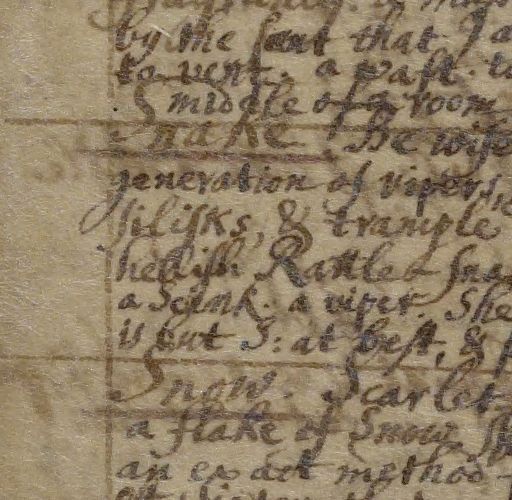 by the scent that I a
to vent. a wast. to
middle of a room
Snake Be wise
generation of vipers,
silisks, & trample
hellish Rattle sna
a Scink. a viper. She
is but S: at best, &
Snow. Scarlet
a flake of Snow
an exact method